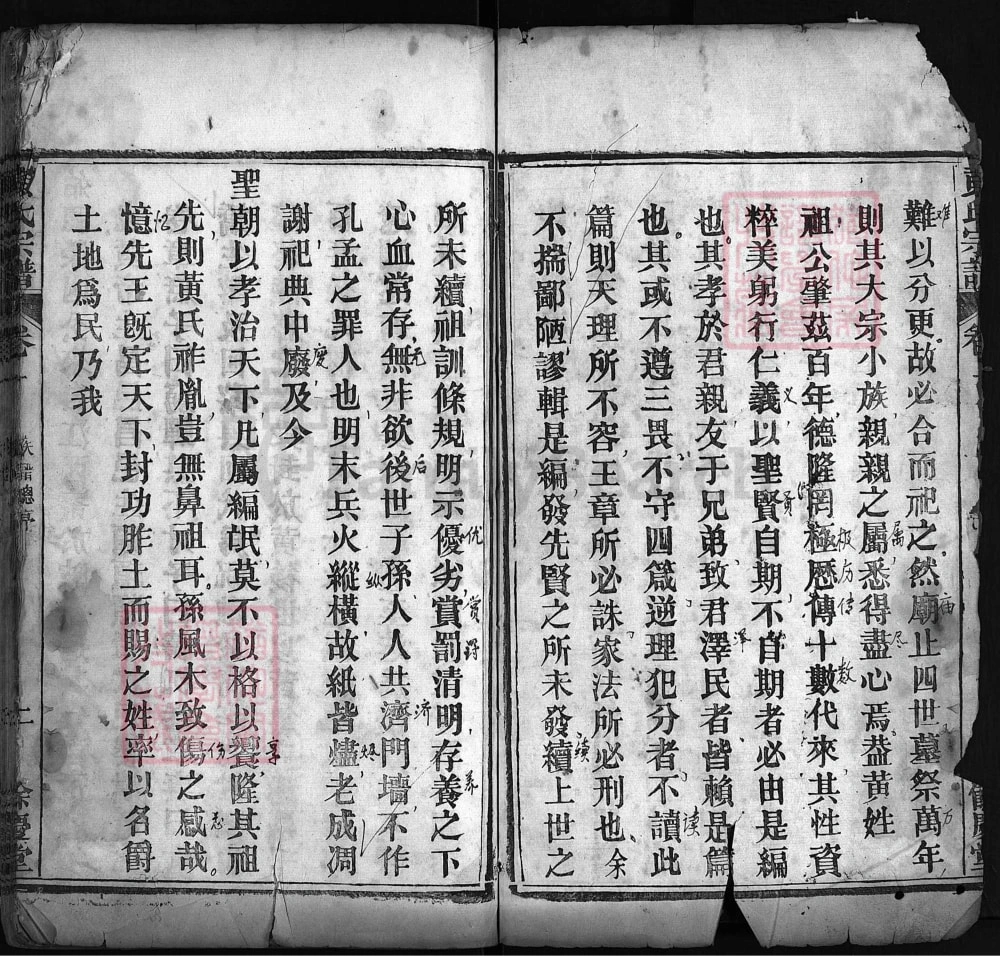 難以分更故必合而祀之然廟止四世墓祭萬年
則其大宗小族親親之屬悉得盡心焉葢黃姓
祖公肇茲百年德隆罔極歷傳十數代來其性資
粹美躬行仁義以聖賢自期不自期者必由是編
也其孝於君親友于兄弟致君澤民者皆賴是篇
也其或不遵三畏不守四箴逆理犯分者不讀此
篇則天理所不容王章所必誅家法所必刑也余
不揣鄙陋謬輯是編發先賢之所未發續上世之
所未續祖訓條規明示優劣賞罰清明存養之下
心血常存無非欲後世子孫人人共濟門墻不作
孔孟之罪人也明末兵火縱橫故紙皆燼老成凋
謝祀典中廢及今
聖朝以孝治天下凡屬編氓莫不以格以饗隆其祖
先則黃氏祚胤豈無鼻祖耳孫風木致傷之慼哉
憶先王既定天下封功胙土而賜之姓率以名爵
土地爲民乃我
黃氏宗譜
卷一
族譜總序
二
餘慶堂